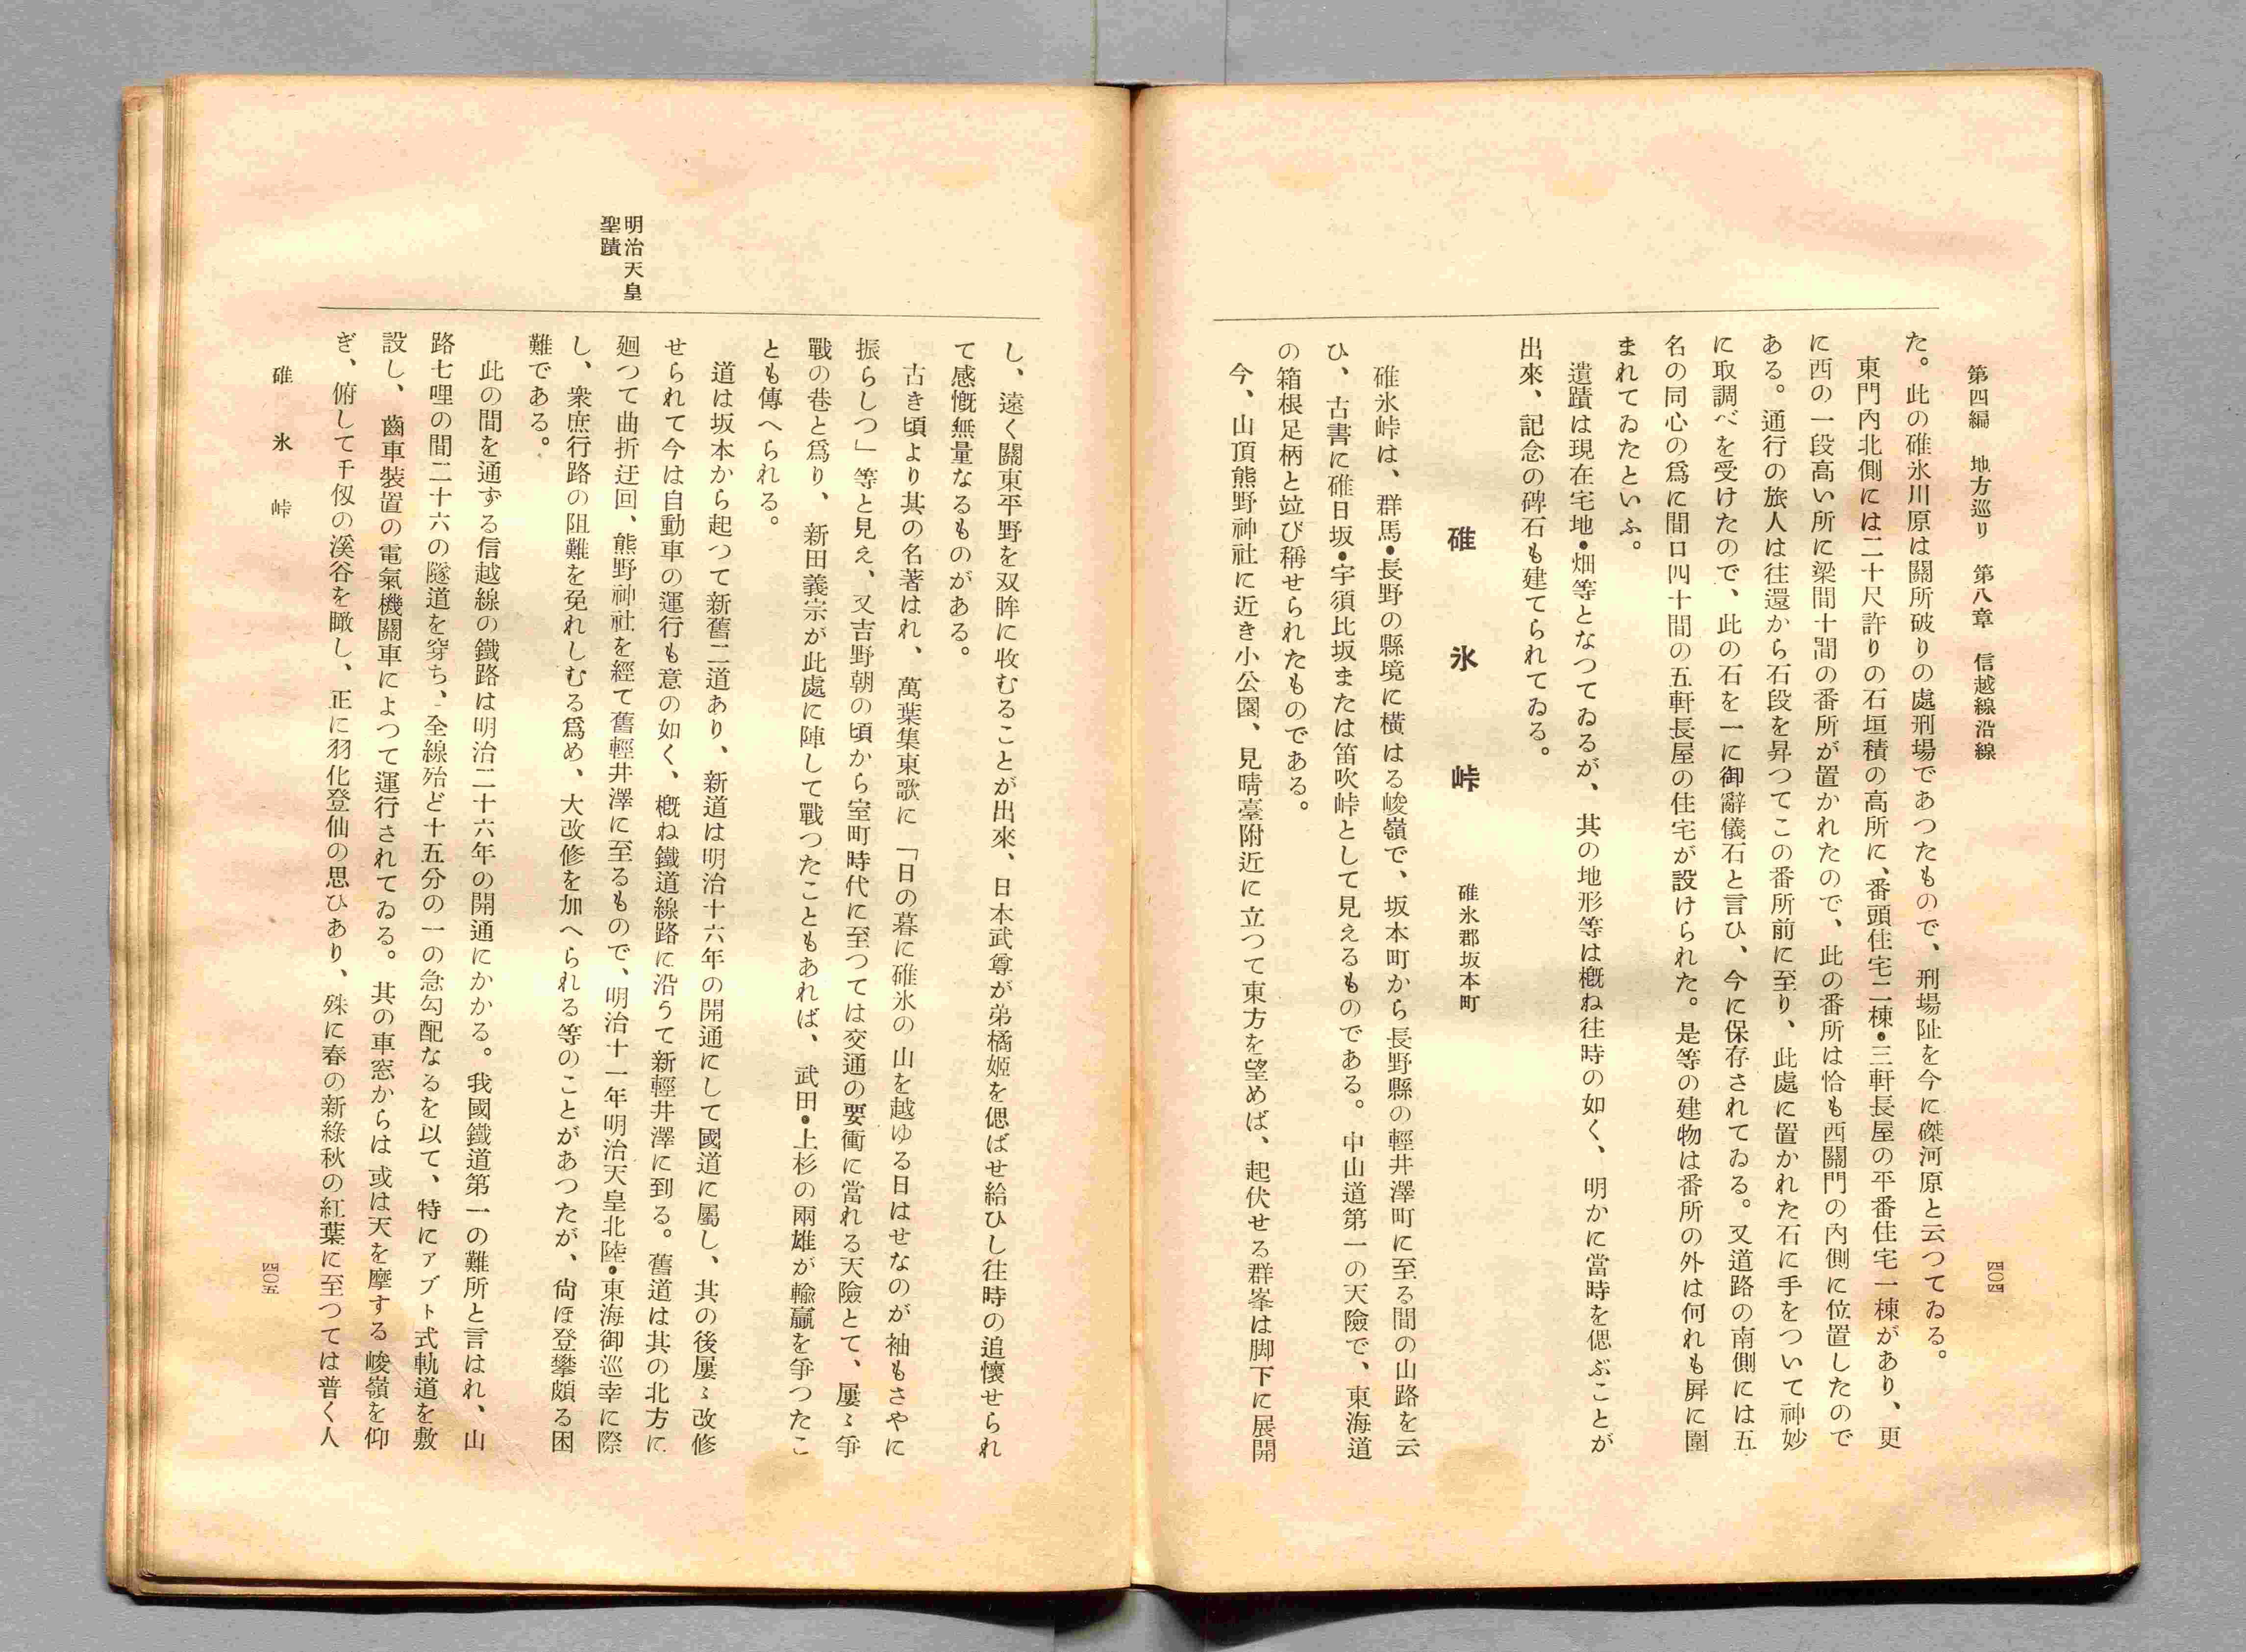 第四編　地方巡り　第八章　信越線沿線
四〇四
た。此の碓氷川原は關所破りの處刑場であつたもので、刑場阯を今に磔河原と云つてゐる。
東門內北側には二十尺許りの石垣積の高所に、番頭住宅二棟・三軒長屋の平番住宅一棟があり、更
に西の一段高い所に梁間十間の番所が置かれたので、此の番所は恰も西關門の內側に位置したので
ある。通行の旅人は往還から石段を昇つてこの番所前に至り、此處に置かれた石に手をついて神妙
に取調べを受けたので、此の石を一に御辭儀石と言ひ、今に保存されてゐる。又道路の南側には五
名の同心の爲に間口四十間の五軒長屋の住宅が設けられた。是等の建物は番所の外は何れも屛に圍
まれてゐたといふ。
遺蹟は現在宅地・畑等となつてゐるが、其の地形等は槪ね往時の如く、明かに當時を偲ぶことが
出來、記念の碑石も建てられてゐる。
碓氷峠　碓氷郡坂本町
碓氷峠は、群馬・長野の縣境に橫はる峻嶺で、坂本町から長野縣の輕井澤町に至る間の山路を云
ひ、古書に碓日坂・宇須比坂または笛吹峠として見えるものである。中山道第一の天險で、東海道
の箱根足柄と竝び稱せられたものである。
今、山頂熊野神社に近き小公園、見晴臺附近に立つて東方を望めば、起伏せる群峯は脚下に展開
し、遠く關東平野を双眸に收むることが出來、日本武尊が弟橘姬を偲ばせ給ひし往時の追懷せられ
て感慨無量なるものがある。
古き頃より其の名著はれ、萬葉集東歌に「日の暮に碓氷の山を越ゆる日はせなのが袖もさやに
振らしつ」等と見え、又吉野朝の頃から室町時代に至つては交通の要衝に當れる天險とて、屢〻爭
戰の巷と爲り、新田義宗が此處に陣して戰つたこともあれば、武田・上杉の兩雄が輸贏を爭つたこ
とも傳へられる。
道は坂本から起つて新舊二道あり、新道は明治十六年の開通にして國道に屬し、其の後屢〻改修
せられて今は自動車の運行も意の如く、槪ね鐵道線路に沿うて新輕井澤に到る。舊道は其の北方に
明治天皇
聖蹟
廻つて曲折迂回、熊野神社を經て舊輕井澤に至るもので、明治十一年明治天皇北陸・東海御巡幸に際
し、衆庶行路の阻難を免れしむる爲め、大改修を加へられる等のことがあつたが、尙ほ登攀頗る困
難である。
此の間を通ずる信越線の鐵路は明治二十六年の開通にかかる。我國鐵道第一の難所と言はれ、山
路七哩の間二十六の隧道を穿ち、全線殆ど十五分の一の急勾配なるを以て、特にアプト式軌道を敷
設し、齒車裝置の電氣機關車によつて運行されてゐる。其の車窓からは或は天を摩する峻嶺を仰
ぎ、俯して千仭の溪谷を瞰し、正に羽化登仙の思ひあり、殊に春の新綠秋の紅葉に至つては普く人
碓氷峠
四〇五